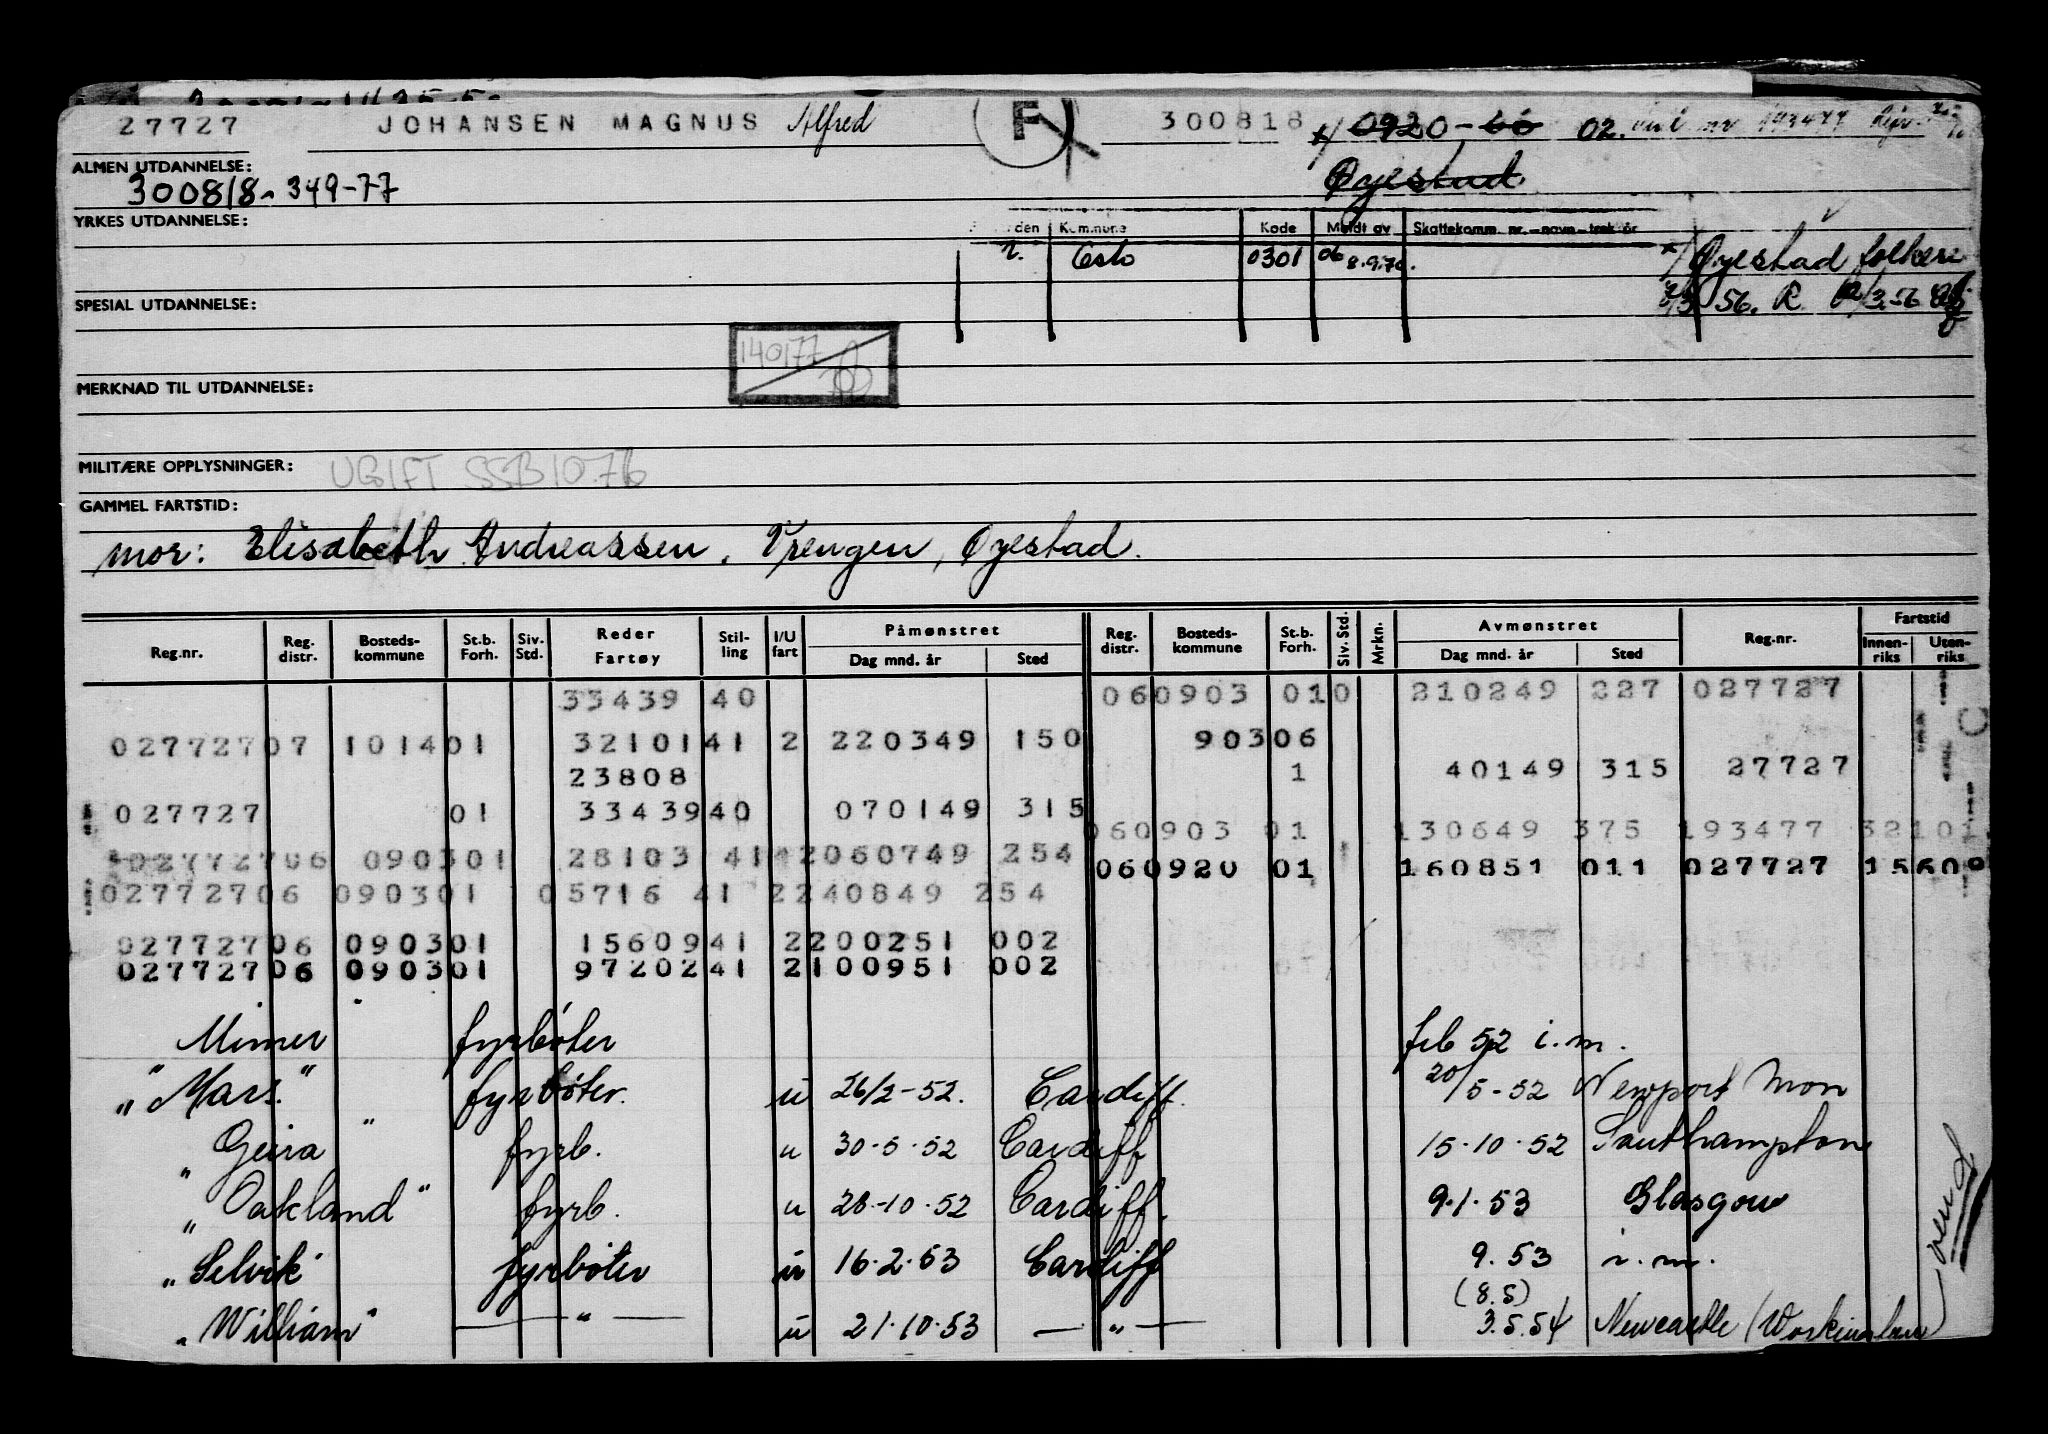 27727 JOHANSEN MAGNUS Alfred F 300818 x/ 0920-60 02.
Øyestad
ALMEN UTDANNELSE:
300818-349-77
YRKES UTDANNELSE:
Kommune Kode Meldt av Skattekomm. nr. - navn - trek år
Oslo 0301 06 8.9.70.
x/ Øyestad folkereg
2/3 56. R
SPESIAL UTDANNELSE:
140177
MERKNAD TIL UTDANNELSE:
MILITÆRE OPPLYSNINGER: UGIFT SSB1076
GAMMEL FARTSTID:
mor: Elisabeth Andreassen, Vrengen, Øyestad.
Reg.nr. Reg. distr. Bosteds-kommune St.b. Forh. Siv. Std. Reder Fartøy Stil-ling I/U fart Påmønstret Dag mnd. år Sted Reg. distr. Bosteds-kommune St.b. Forh. Siv. Std. Mrkn. Avmønstret Dag mnd. år Sted Reg.nr. Fartstid Innen-riks Uten-riks
33439 40 060903 010 210249 227 027727
02772707 101401 32101 41 2 220349 150 90306
23808 1 40149 315 27727
027727 01 33439 40 070149 315
060903 01 130649 375 193477 32101
02772706 090301 28103 41 2060749 254
060920 01 160851 011 027727 15609
02772706 090301 05716 41 2240849 254
02772706 090301 15609 41 2200251 002
02772706 090301 97202 41 2100951 002
Mimer fyrbøter feb 52 i.m.
"Mars" fyrbøter. u 26/2-52. Cardiff. 20/5-52 Newport Mon
" Geira " fyrb. u 30-5-52 Cardiff 15-10-52 Southampton
" Oakland " fyrb. u 28-10-52 Cardiff. 9.1.53 Glasgow
"Selvik" fyrbøter u 16.2.53 Cardiff 9.53 i.m.
(8.5)
"William" — " — u 21.10.53 — " — 3.5.54 Newcastle
vend